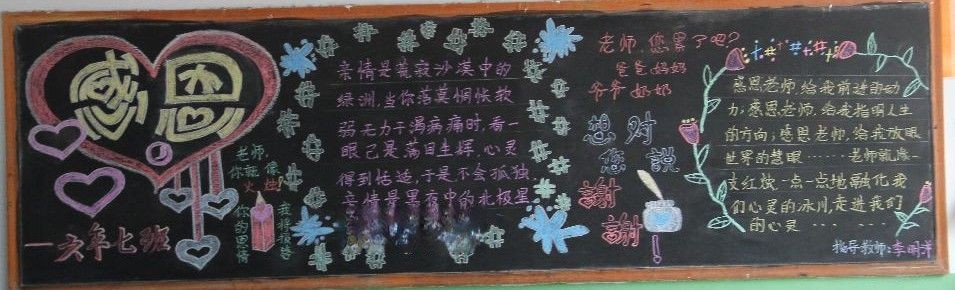 感恩
老师,
你就像
火炬!
你的恩情
我将报答
一六年七班
亲情是荒寂沙漠中的
绿洲,当你落莫惆怅软
弱无力干渴病痛时,看一
眼已是满目生辉,心灵
得到恬适,于是不会孤独
亲情是黑夜中的北极星
老师,您累了吧?
爸爸妈妈
爷爷奶奶
想对
您説
謝
謝
感恩老师,给我前进的动
力;感恩老师,给我指明人生
的方向;感恩老师,给我放眼
世界的慧眼……老师就像一
支红烛一点一点地融化我
们心灵的冰川,走进我们
的心灵……
指导教师:李明洋